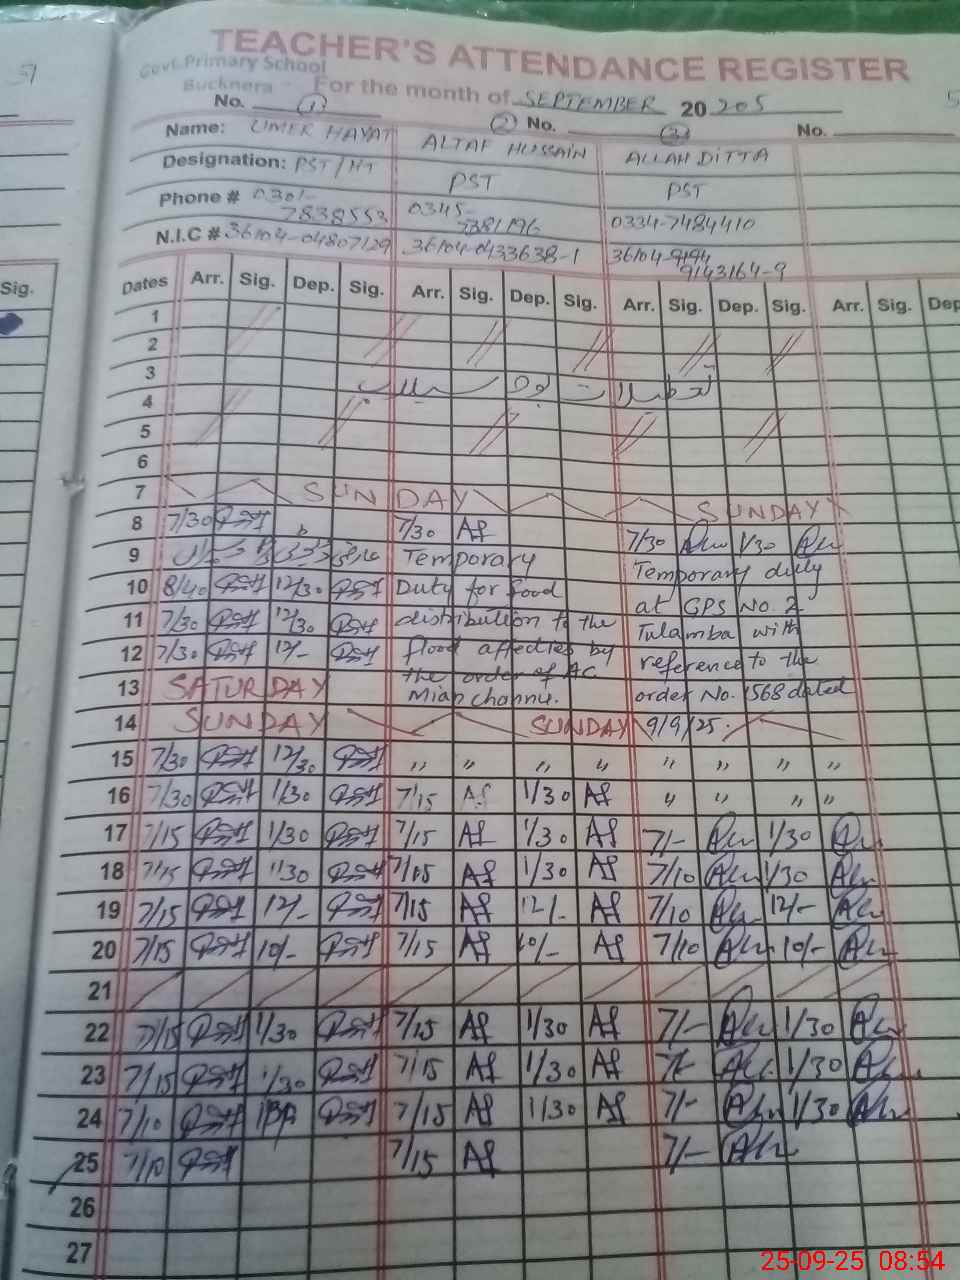 51
TEACHER'S ATTENDANCE REGISTER
Govt. Primary School
Bucknera
For the month of SEPTEMBER 20 205
5
No. 1 2 No. 3 No.
Name: UMER HAYAT ALTAF HUSSAIN ALLAH DITTA
Designation: PST/HT PST PST
Phone # 0301- 7838553 0345- 7381196 0334-7484410
N.I.C # 36104-04807129 36104-0433638-1 36104-9194 9143164-9
Sig.
Dates Arr. Sig. Dep. Sig. Arr. Sig. Dep. Sig. Arr. Sig. Dep. Sig. Arr. Sig. Dep
1
2
3 تعطیلات بوجہ سیلاب
4
5
6
7 SUNDAY SUNDAY
8 7/30 7/30 Af 7/30 1/30
9 Temporary Temporary duty
10 8/40 12/30 Duty for food at GPS No. 2
11 7/30 12/30 distribution to the Tulamba with
12 7/30 12/- flood affecties by reference to the
13 SATURDAY the order of AC Mian channu. order No. 1568 dated
14 SUNDAY SUNDAY 9/9/25.
15 7/30 12/30 " " " " " " " "
16 7/30 1/30 7/15 Af 1/30 Af " " " "
17 7/15 1/30 7/15 Af 1/30 Af 7/- 1/30
18 7/15 1/30 7/15 Af 1/30 Af 7/10 1/30
19 7/15 12/- 7/15 Af 12/- Af 7/10 12/-
20 7/15 10/- 7/15 Af 10/- Af 7/10 10/-
21
22 7/15 1/30 7/15 Af 1/30 Af 7/- 1/30
23 7/15 1/30 7/15 Af 1/30 Af 7/- 1/30
24 7/10 7/15 Af 1/30 Af 7/- 1/30
25 7/10 7/15 Af 7/-
26
27
25-09-25 08:54